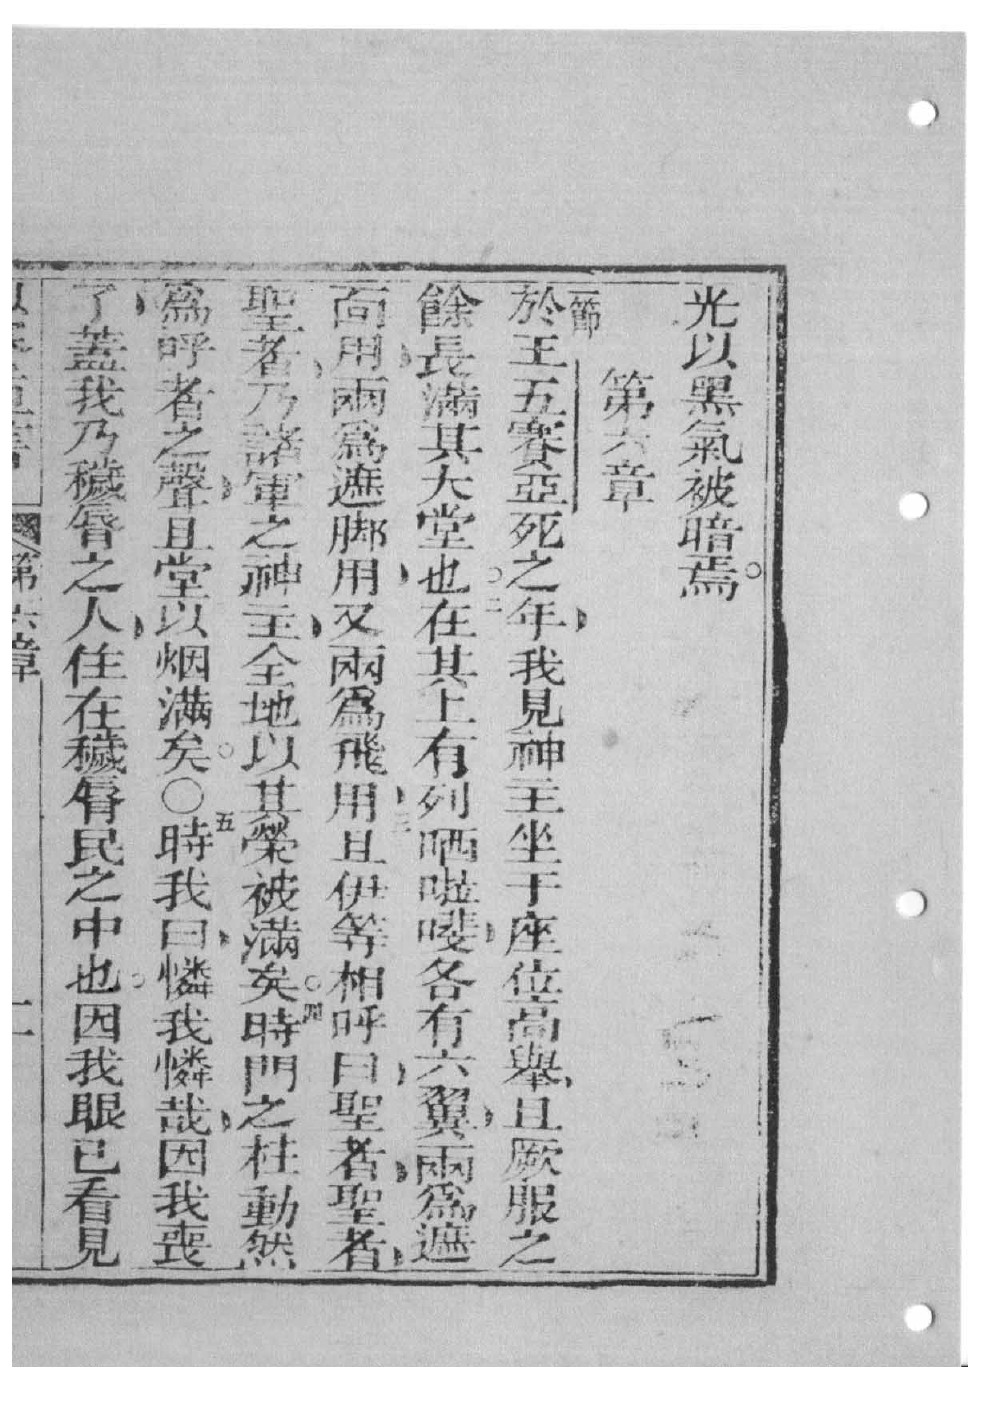 光以黑氣被暗焉。
第六章
一節
於王五賽亞死之年我見神主坐于座位高舉、且厥服之
餘長滿其大堂也。二在其上有列哂㘉嘜各有六翼兩爲遮
面用兩爲遮脚用又兩爲飛用三且伊等相呼曰聖者聖者
聖者乃諸軍之神主全地以其榮被滿矣。四時門之柱動然
爲呼者之聲且堂以烟滿矣。○五時我曰憐我憐哉因我喪
了蓋我乃穢脣之人住在穢脣民之中也。因我眼已看見
第六章